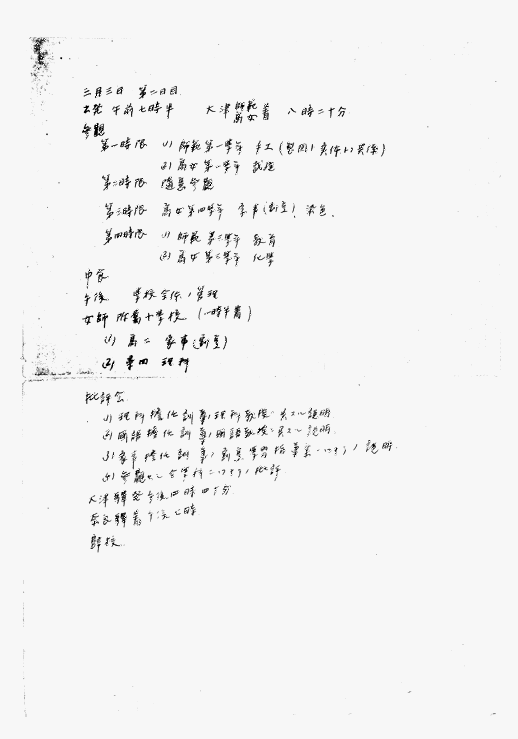 三月三日 第二日目
出発 午前七時半 大津 師範 高女 着 八時二十分
参観
第一時限 (1) 師範第一学年 手工
(2) 高女第一学年 裁縫
第二時限 随意参観
第三時限 高女第四学年 家事(割烹) 染色、
第四時限 (1) 師範第三学年 教育
(2) 高女第三学年 化学
中食
午後 学校全体ノ管理
女師附属小学校 (一時半着)
(1) 高二 家事(割烹)
(2) 尋四 理科
批評会
(1) 理科担任訓導ノ理科教授ニ関スル説明
(2) 国語担任訓導ノ国語教授ニ関スル説明
(3) 家事担任訓導ノ 説明
(4) 参観セル各学科ニツキテノ批評
大津駅発午後四時四十分
奈良駅着午後七時
帰校